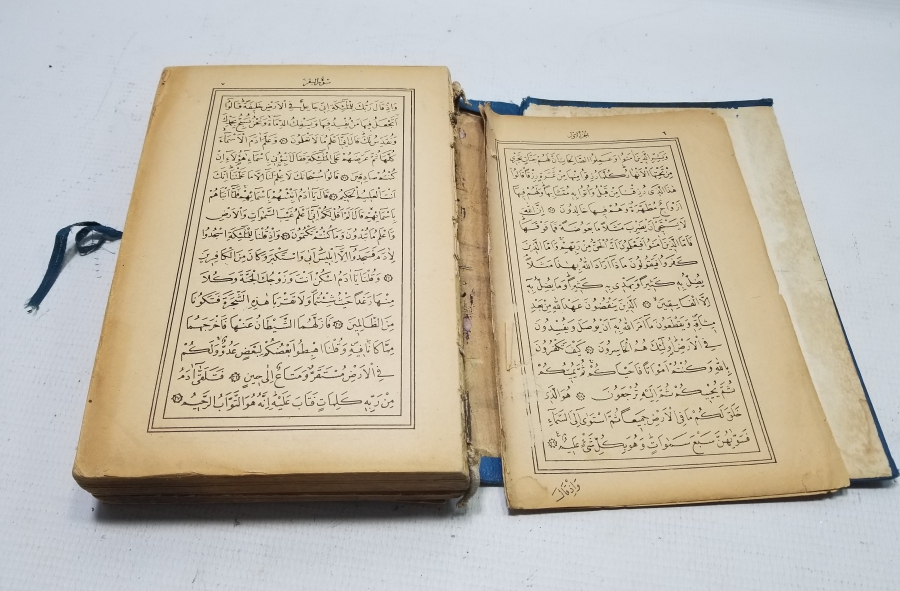 ٦ الجزء الاول
وَبَشِّرِ الَّذِينَ اٰمَنُوا وَعَمِلُوا الصَّالِحَاتِ اَنَّ لَهُمْ جَنَّاتٍ تَجْرِي
مِنْ تَحْتِهَا الْاَنْهَارُ كُلَّمَا رُزِقُوا مِنْهَا مِنْ ثَمَرَةٍ رِزْقًا قَالُوا
هٰذَا الَّذِي رُزِقْنَا مِنْ قَبْلُ وَاُتُوا بِهِ مُتَشَابِهًا وَلَهُمْ فِيهَا
اَزْوَاجٌ مُطَهَّرَةٌ وَهُمْ فِيهَا خَالِدُونَ ۞ اِنَّ اللّٰهَ
لَا يَسْتَحْيِي اَنْ يَضْرِبَ مَثَلًا مَا بَعُوضَةً فَمَا فَوْقَهَا
فَاَمَّا الَّذِينَ اٰمَنُوا فَيَعْلَمُونَ اَنَّهُ الْحَقُّ مِنْ رَبِّهِمْ وَاَمَّا الَّذِينَ
كَفَرُوا فَيَقُولُونَ مَاذَا اَرَادَ اللّٰهُ بِهٰذَا مَثَلًا
يُضِلُّ بِهِ كَثِيرًا وَيَهْدِي بِهِ كَثِيرًا وَمَا يُضِلُّ بِهِ
اِلَّا الْفَاسِقِينَ ۞ الَّذِينَ يَنْقُضُونَ عَهْدَ اللّٰهِ مِنْ بَعْدِ
مِيثَاقِهِ وَيَقْطَعُونَ مَا اَمَرَ اللّٰهُ بِهِ اَنْ يُوصَلَ وَيُفْسِدُونَ
فِي الْاَرْضِ اُولٰئِكَ هُمُ الْخَاسِرُونَ ۞ كَيْفَ تَكْفُرُونَ
بِاللّٰهِ وَكُنْتُمْ اَمْوَاتًا فَاَحْيَاكُمْ ثُمَّ يُمِيتُكُمْ
ثُمَّ يُحْيِيكُمْ ثُمَّ اِلَيْهِ تُرْجَعُونَ ۞ هُوَ الَّذِي
خَلَقَ لَكُمْ مَا فِي الْاَرْضِ جَمِيعًا ثُمَّ اسْتَوٰى اِلَى السَّمَاءِ
فَسَوّٰيهُنَّ سَبْعَ سَمٰوَاتٍ وَهُوَ بِكُلِّ شَيْءٍ عَلِيمٌ ۞
وَاِذْ قَالَ
سورة البقرة ٧
وَاِذْ قَالَ رَبُّكَ لِلْمَلٰئِكَةِ اِنِّي جَاعِلٌ فِي الْاَرْضِ خَلِيفَةً قَالُوا
اَتَجْعَلُ فِيهَا مَنْ يُفْسِدُ فِيهَا وَيَسْفِكُ الدِّمَاءَ وَنَحْنُ نُسَبِّحُ بِحَمْدِكَ
وَنُقَدِّسُ لَكَ قَالَ اِنِّي اَعْلَمُ مَا لَا تَعْلَمُونَ ۞ وَعَلَّمَ اٰدَمَ الْاَسْمَاءَ
كُلَّهَا ثُمَّ عَرَضَهُمْ عَلَى الْمَلٰئِكَةِ فَقَالَ اَنْبِؤُنِي بِاَسْمَاءِ هٰؤُلَاءِ اِنْ
كُنْتُمْ صَادِقِينَ ۞ قَالُوا سُبْحَانَكَ لَا عِلْمَ لَنَا اِلَّا مَا عَلَّمْتَنَا اِنَّكَ
اَنْتَ الْعَلِيمُ الْحَكِيمُ ۞ قَالَ يَا اٰدَمُ اَنْبِئْهُمْ بِاَسْمَائِهِمْ فَلَمَّا اَنْبَاَهُمْ
بِاَسْمَائِهِمْ قَالَ اَلَمْ اَقُلْ لَكُمْ اِنِّي اَعْلَمُ غَيْبَ السَّمٰوَاتِ وَالْاَرْضِ
وَاَعْلَمُ مَا تُبْدُونَ وَمَا كُنْتُمْ تَكْتُمُونَ ۞ وَاِذْ قُلْنَا لِلْمَلٰئِكَةِ اسْجُدُوا
لِاٰدَمَ فَسَجَدُوا اِلَّا اِبْلِيسَ اَبٰى وَاسْتَكْبَرَ وَكَانَ مِنَ الْكَافِرِينَ
۞ وَقُلْنَا يَا اٰدَمُ اسْكُنْ اَنْتَ وَزَوْجُكَ الْجَنَّةَ وَكُلَا
مِنْهَا رَغَدًا حَيْثُ شِئْتُمَا وَلَا تَقْرَبَا هٰذِهِ الشَّجَرَةَ فَتَكُونَا
مِنَ الظَّالِمِينَ ۞ فَاَزَلَّهُمَا الشَّيْطَانُ عَنْهَا فَاَخْرَجَهُمَا
مِمَّا كَانَا فِيهِ وَقُلْنَا اهْبِطُوا بَعْضُكُمْ لِبَعْضٍ عَدُوٌّ وَلَكُمْ
فِي الْاَرْضِ مُسْتَقَرٌّ وَمَتَاعٌ اِلٰى حِينٍ ۞ فَتَلَقّٰى اٰدَمُ
مِنْ رَبِّهِ كَلِمَاتٍ فَتَابَ عَلَيْهِ اِنَّهُ هُوَ التَّوَّابُ الرَّحِيمُ ۞